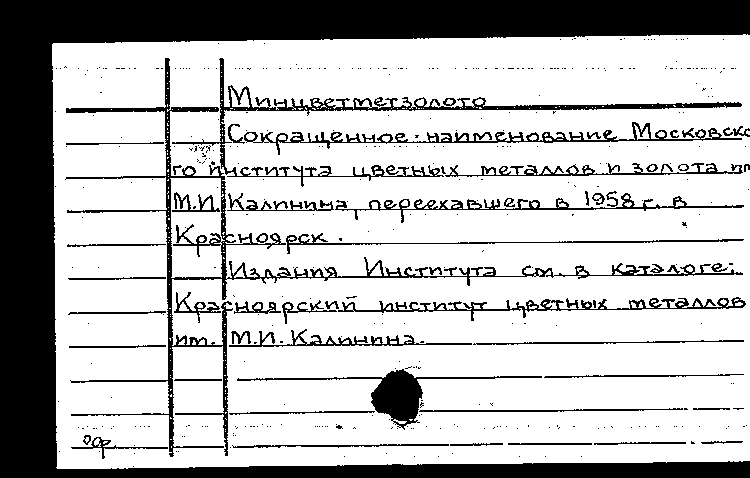 Минцветметзолото
Сокращенное наименование Московско
го института цветных металлов и золота им
М.И. Калинина, переехавшего в 1958 г. в
Красноярск.
Издания Института см. в каталоге:
Красноярский институт цветных металлов
им. М.И. Калинина.